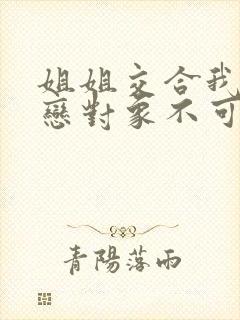 姐姐交合我
戀對象不可
青陽落雨